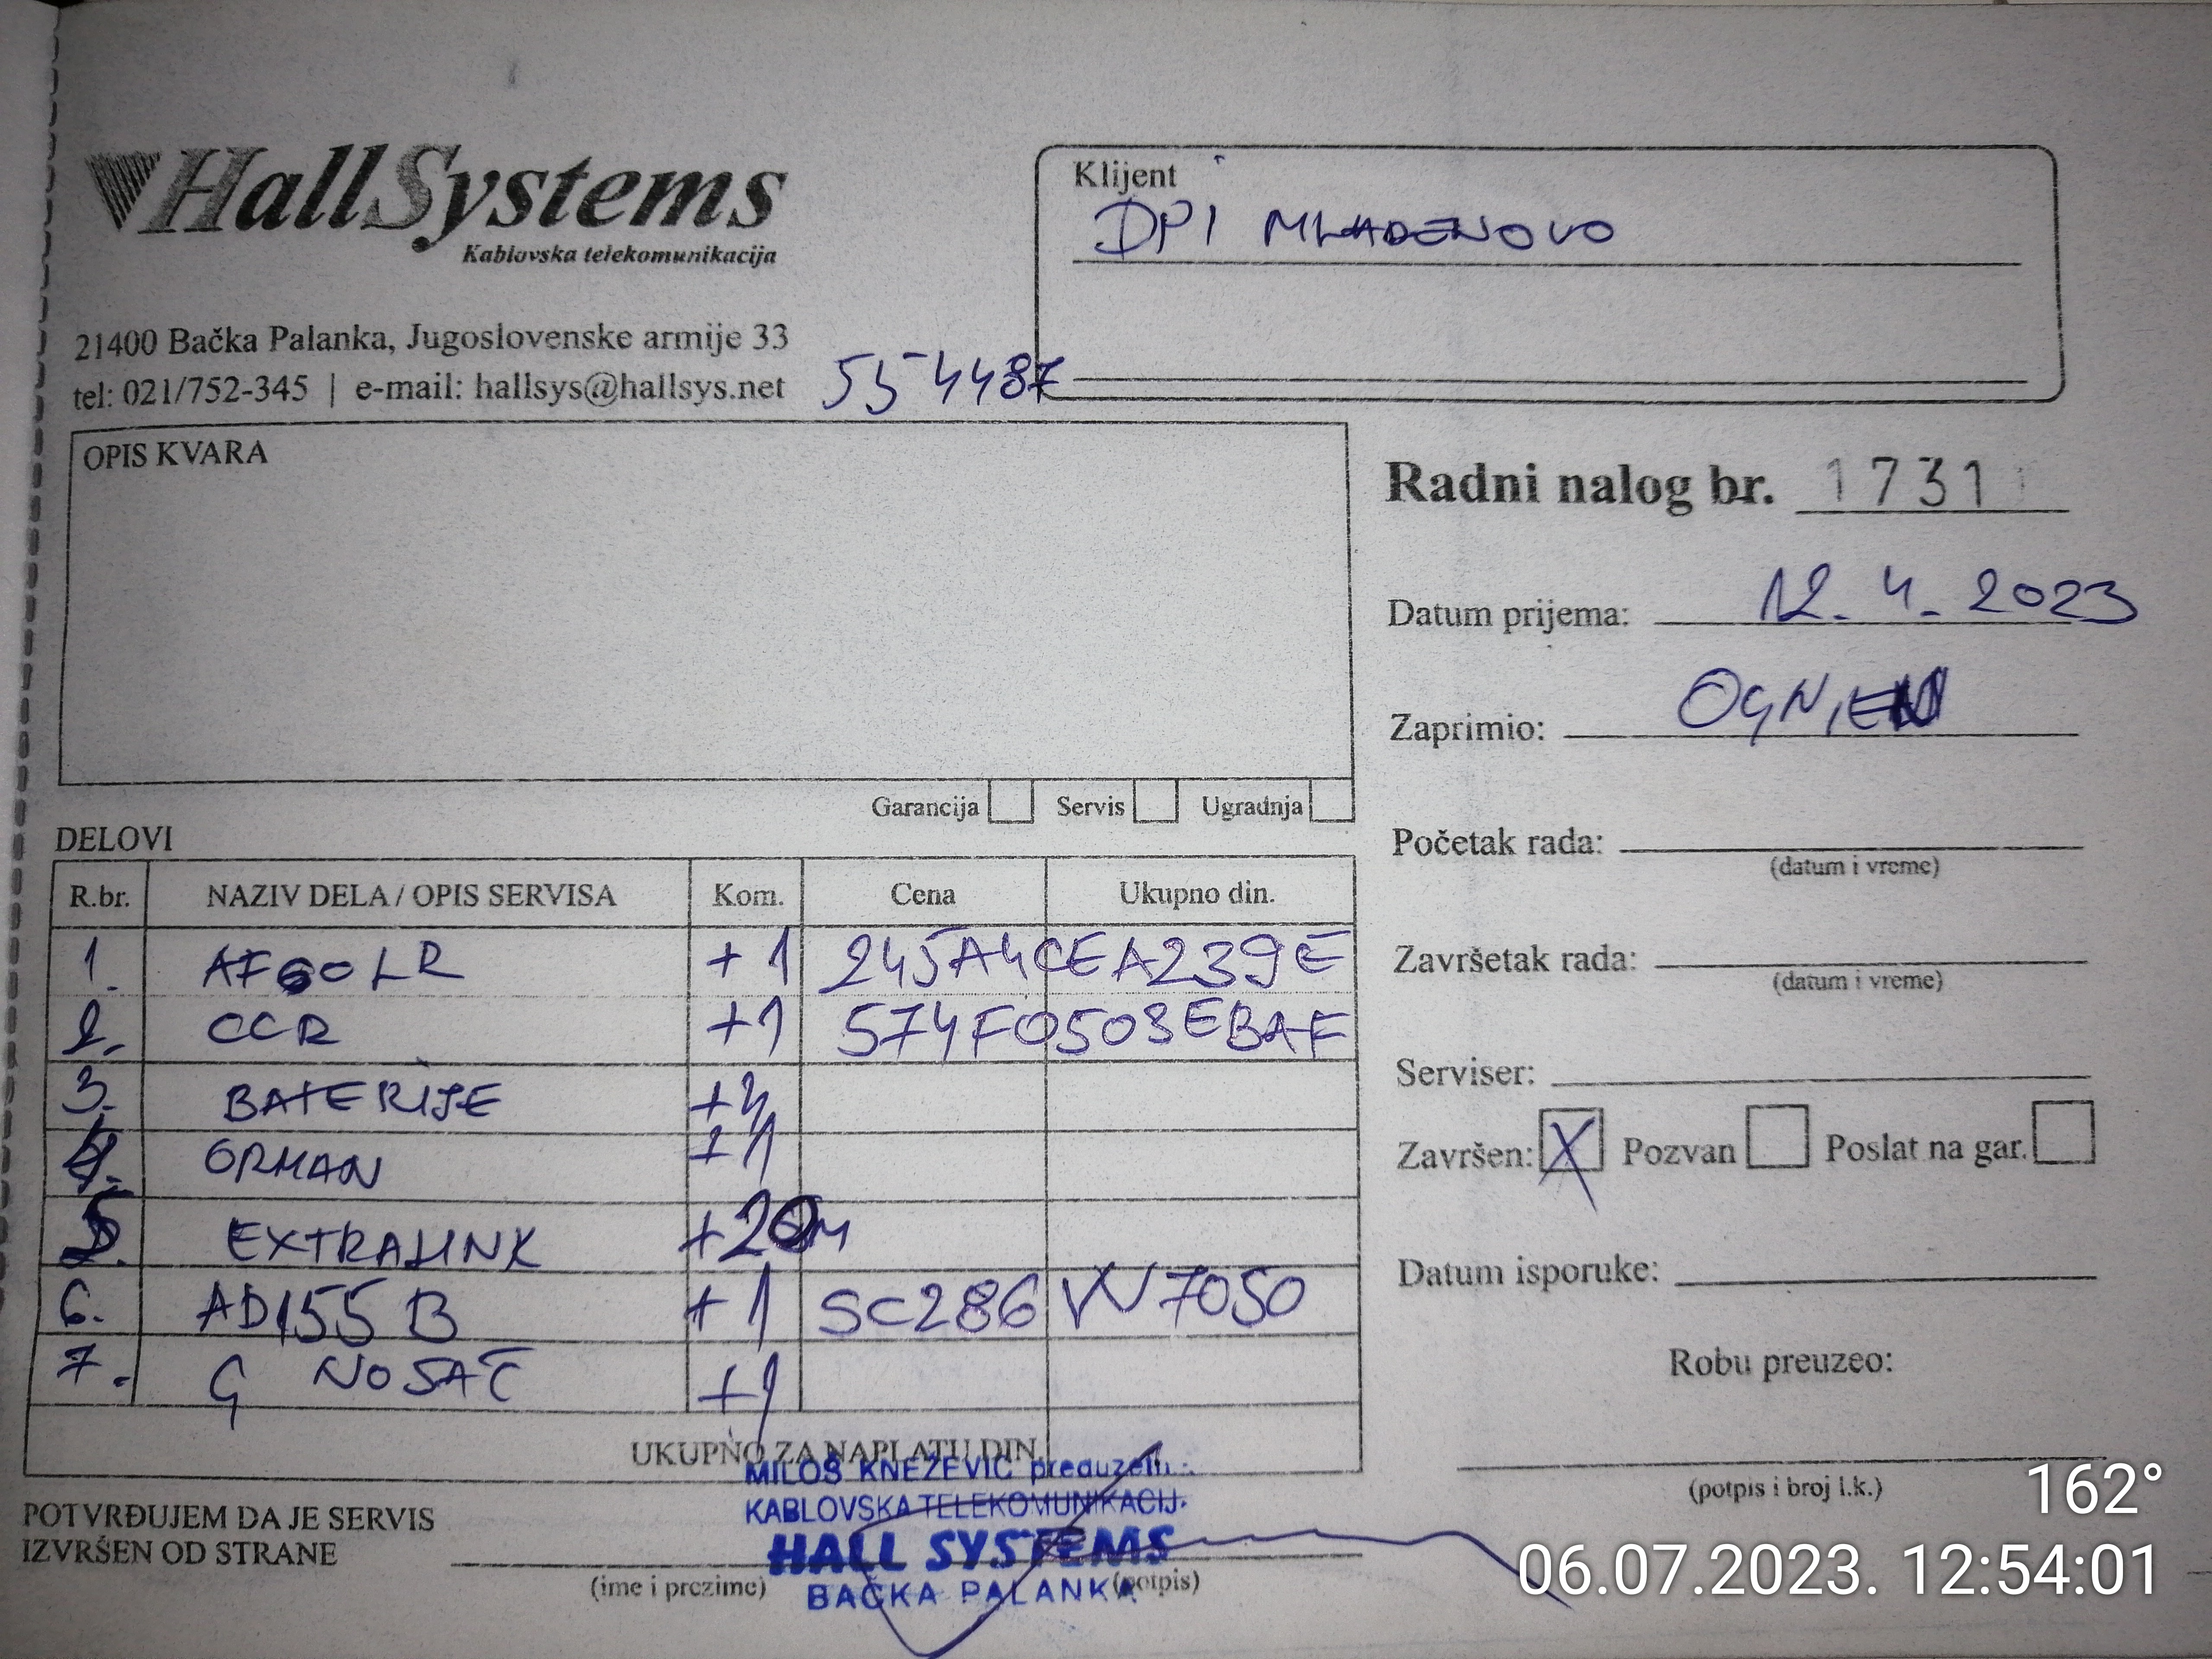 HallSystems
Kablovska telekomunikacija
21400 Bačka Palanka, Jugoslovenske armije 33
tel: 021/752-345 | e-mail: hallsys@hallsys.net
554487
Klijent
DPI MLADENOVO
OPIS KVARA
Garancija Servis Ugradnja
Radni nalog br. 1731
Datum prijema: 12. 4. 2023
Zaprimio: OGNJEN
Početak rada:
(datum i vreme)
Završetak rada:
(datum i vreme)
Serviser:
Završen: X Pozvan Poslat na gar.
Datum isporuke:
Robu preuzeo:
(potpis i broj l.k.)
DELOVI
R.br. NAZIV DELA / OPIS SERVISA Kom. Cena Ukupno din.
1. AF60LR +1 245A4CEA239E
2. CCR +1 574F0503EBAF
3. BATERIJE
4. ORMAN
5. EXTRALINK +20m
6. AD155B +1 SC286 VV7050
7. G NOSAČ +1
UKUPNO ZA NAPLATU DIN.
MILOŠ KNEŽEVIĆ preduzetn.
KABLOVSKA TELEKOMUNIKACIJ.
HALL SYSTEMS
BAČKA PALANKA
POTVRĐUJEM DA JE SERVIS
IZVRŠEN OD STRANE
(ime i prezime) (potpis)
162°
06.07.2023. 12:54:01